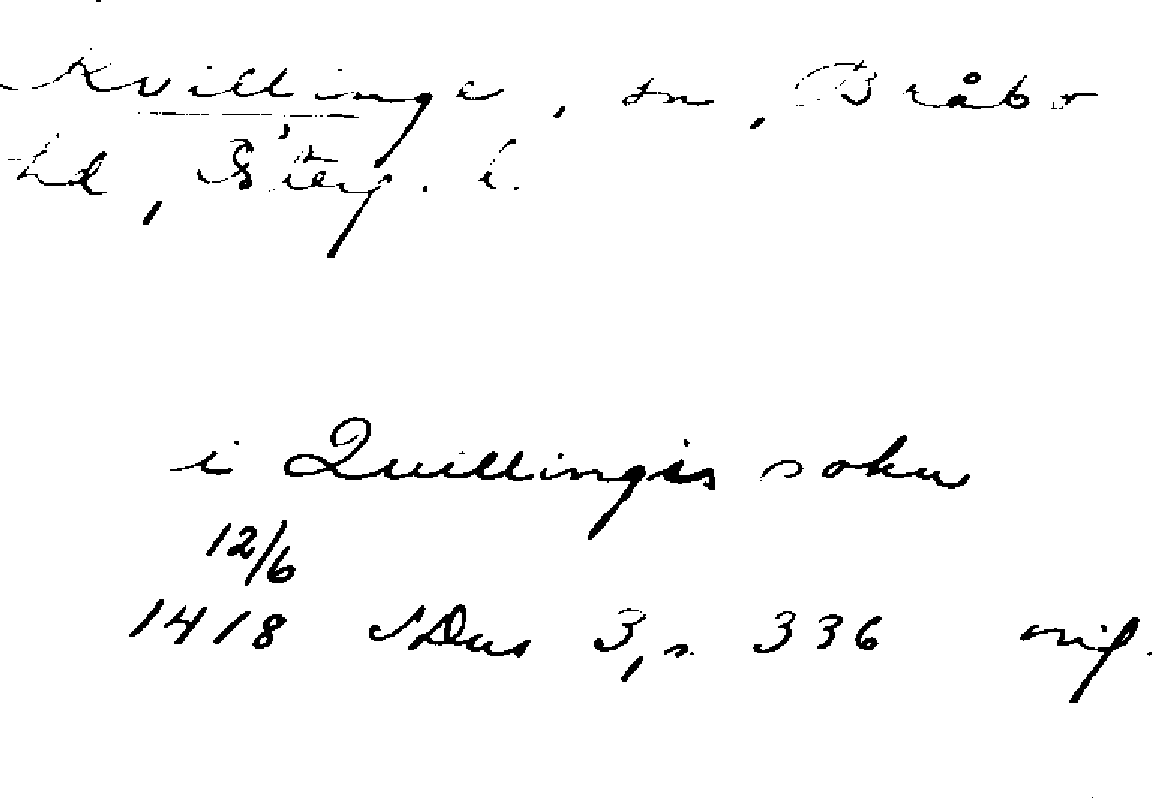 Kvillinge, sn, Bråbo
hd, Österg. l.
i Quillingis sokn
12/6
1418 SDns 3, s. 336 orig.